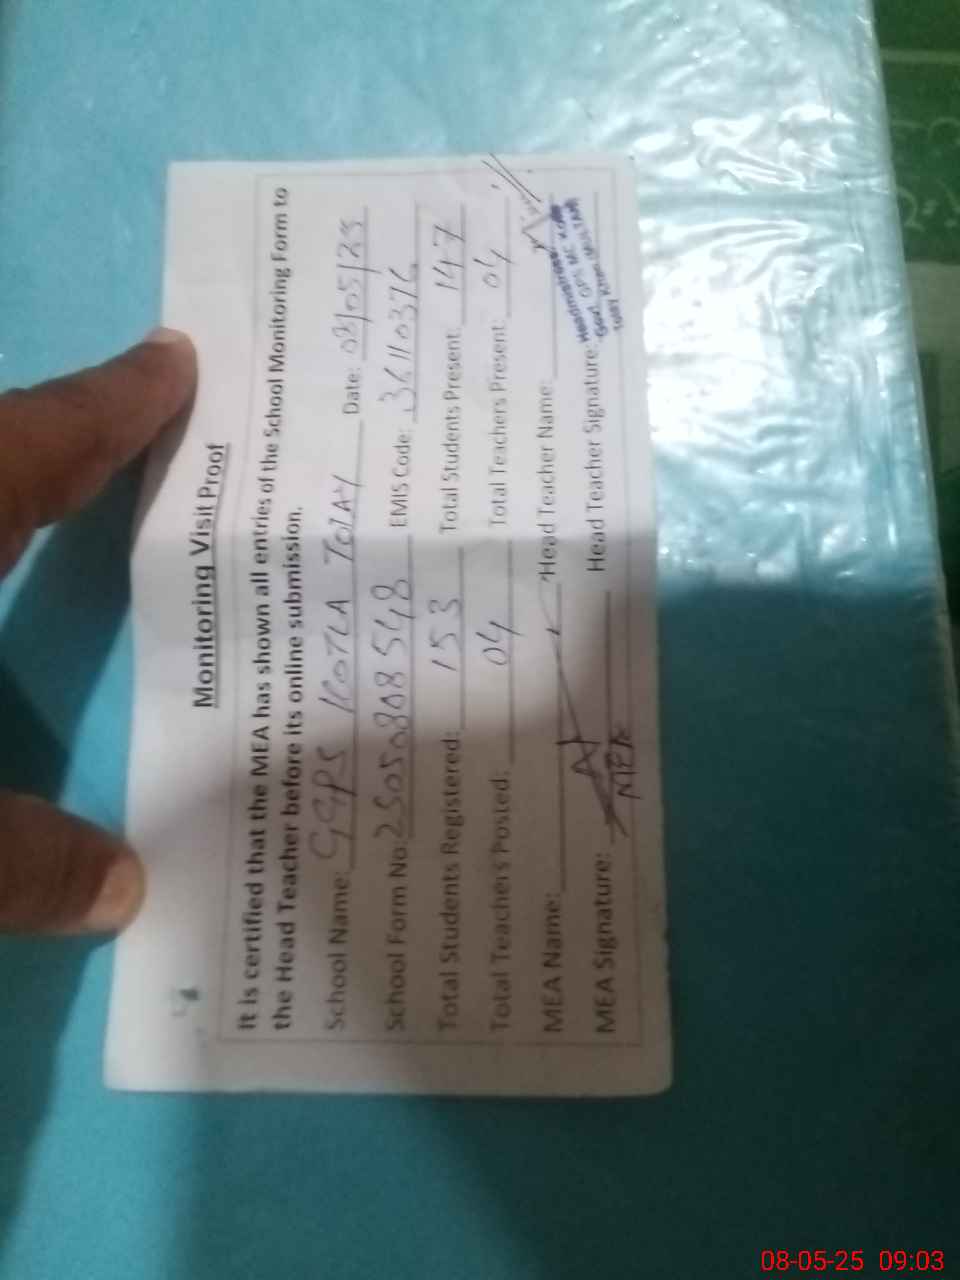 Monitoring Visit Proof
It is certified that the MEA has shown all entries of the School Monitoring Form to
the Head Teacher before its online submission.
School Name: GGPS KOTLA TOLAY Date: 08/05/25
School Form No: 25050808548 EMIS Code: 36110376
Total Students Registered: 153 Total Students Present 147
Total Teachers Posted: 04 Total Teachers Present: 04
MEA Name: Head Teacher Name:
MEA Signature: MEA Head Teacher Signature:
Headmistress
08-05-25 09:03